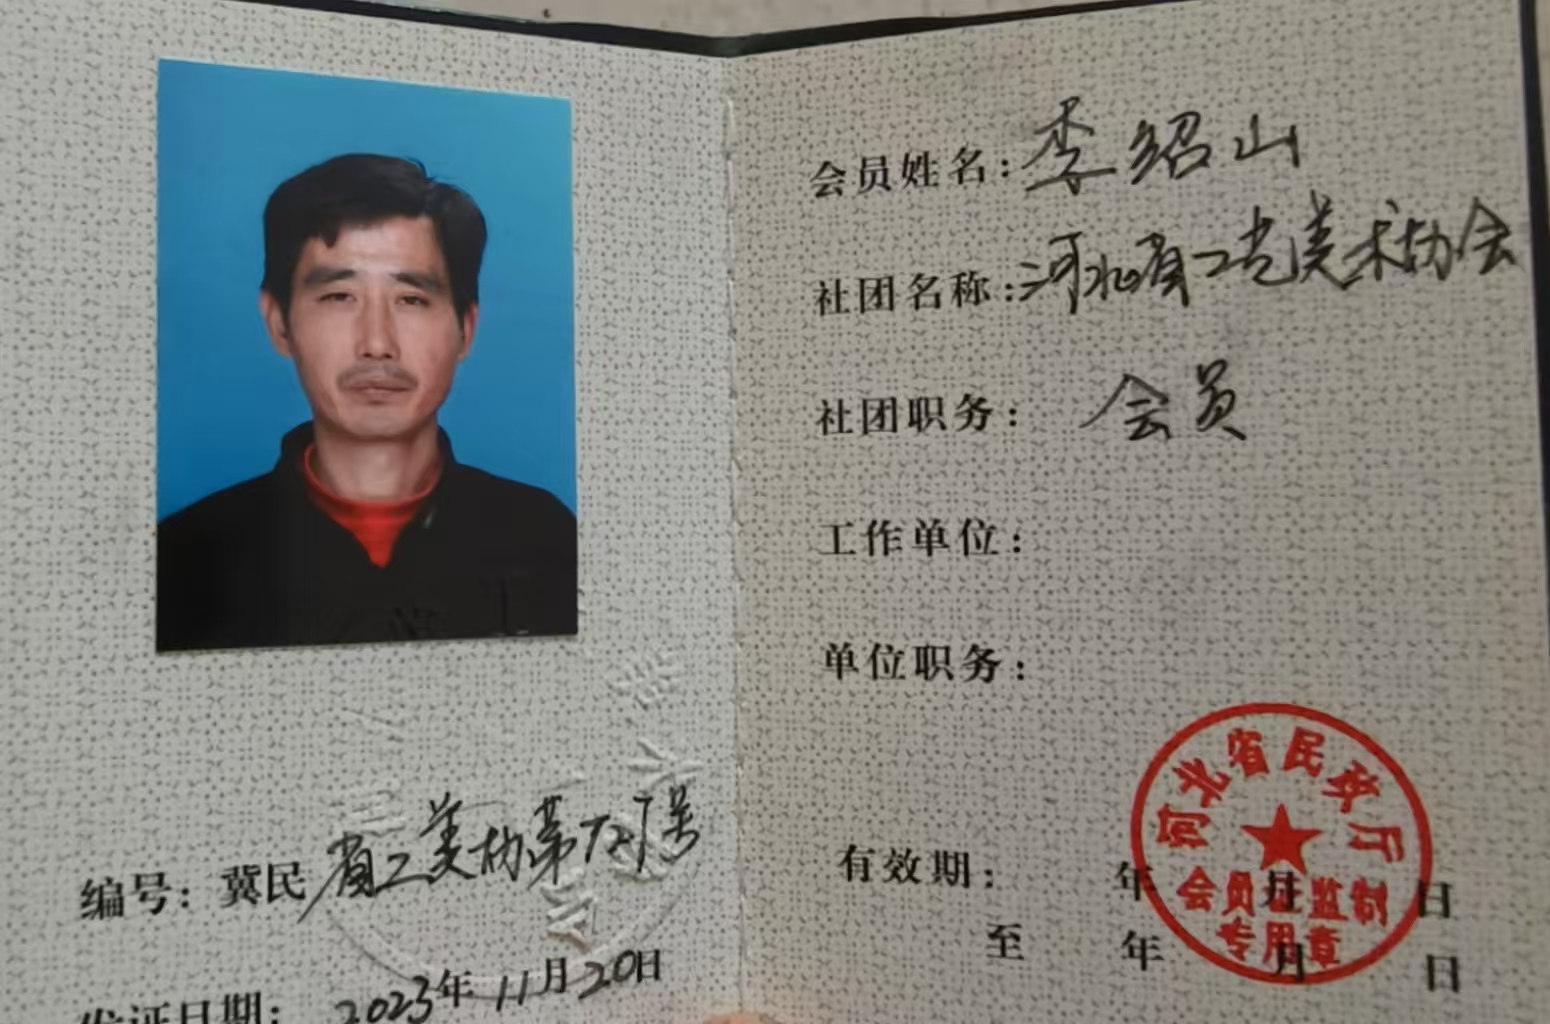 编号：冀民省工美协第 号
发证日期：2023年11月20日
会员姓名：李绍山
社团名称：河北省工艺美术协会
社团职务：会员
工作单位：
单位职务：
有效期： 年 月 日
至 年 月 日
河北省民政厅
会员证监制
专用章